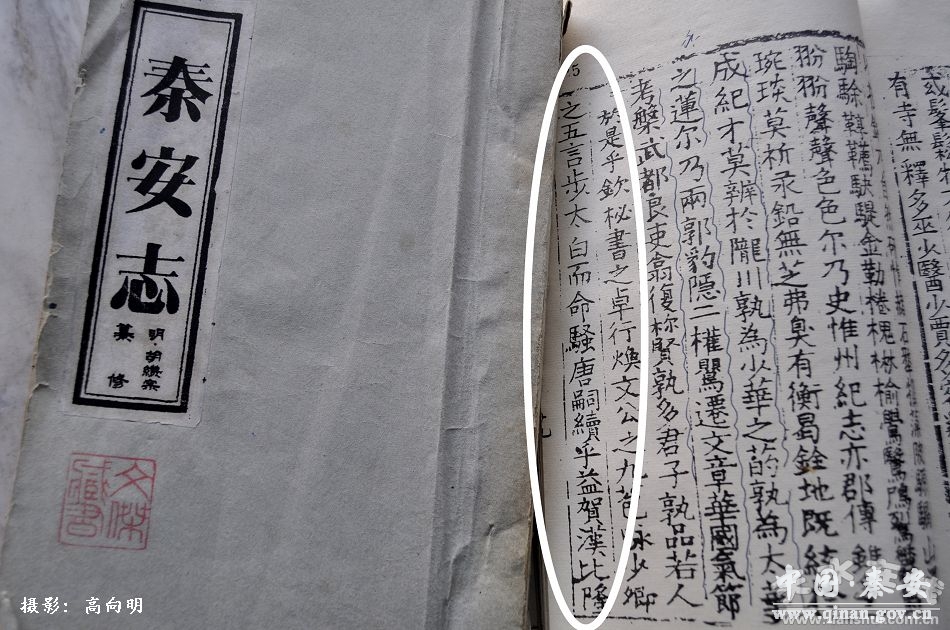 秦安志
明 胡纘宗
纂修
文傑
藏書
或髮鬆
有寺無釋多巫少醫少賈
騊駼鞲鞴駃騠金勒
翂翂聲聲色色尔乃史惟州紀志亦郡傳
琬琰莫析汞鉛無芝弗臭有衡曷銓地既
成紀才莫辨於隴川孰為少華之菂孰為太華
之蓮尔乃兩郭豹隱二權鸎遷文章華國氣節
考槃武都良吏翕復袮賢孰多君子孰品若人
於是乎欽秘書之卓行煥文公之九芭咏少鄉
之五言步太白而命騷唐嗣續乎益賀漢比隆
5
摄影：高向明
中国秦安
www.qinan.gov.cn